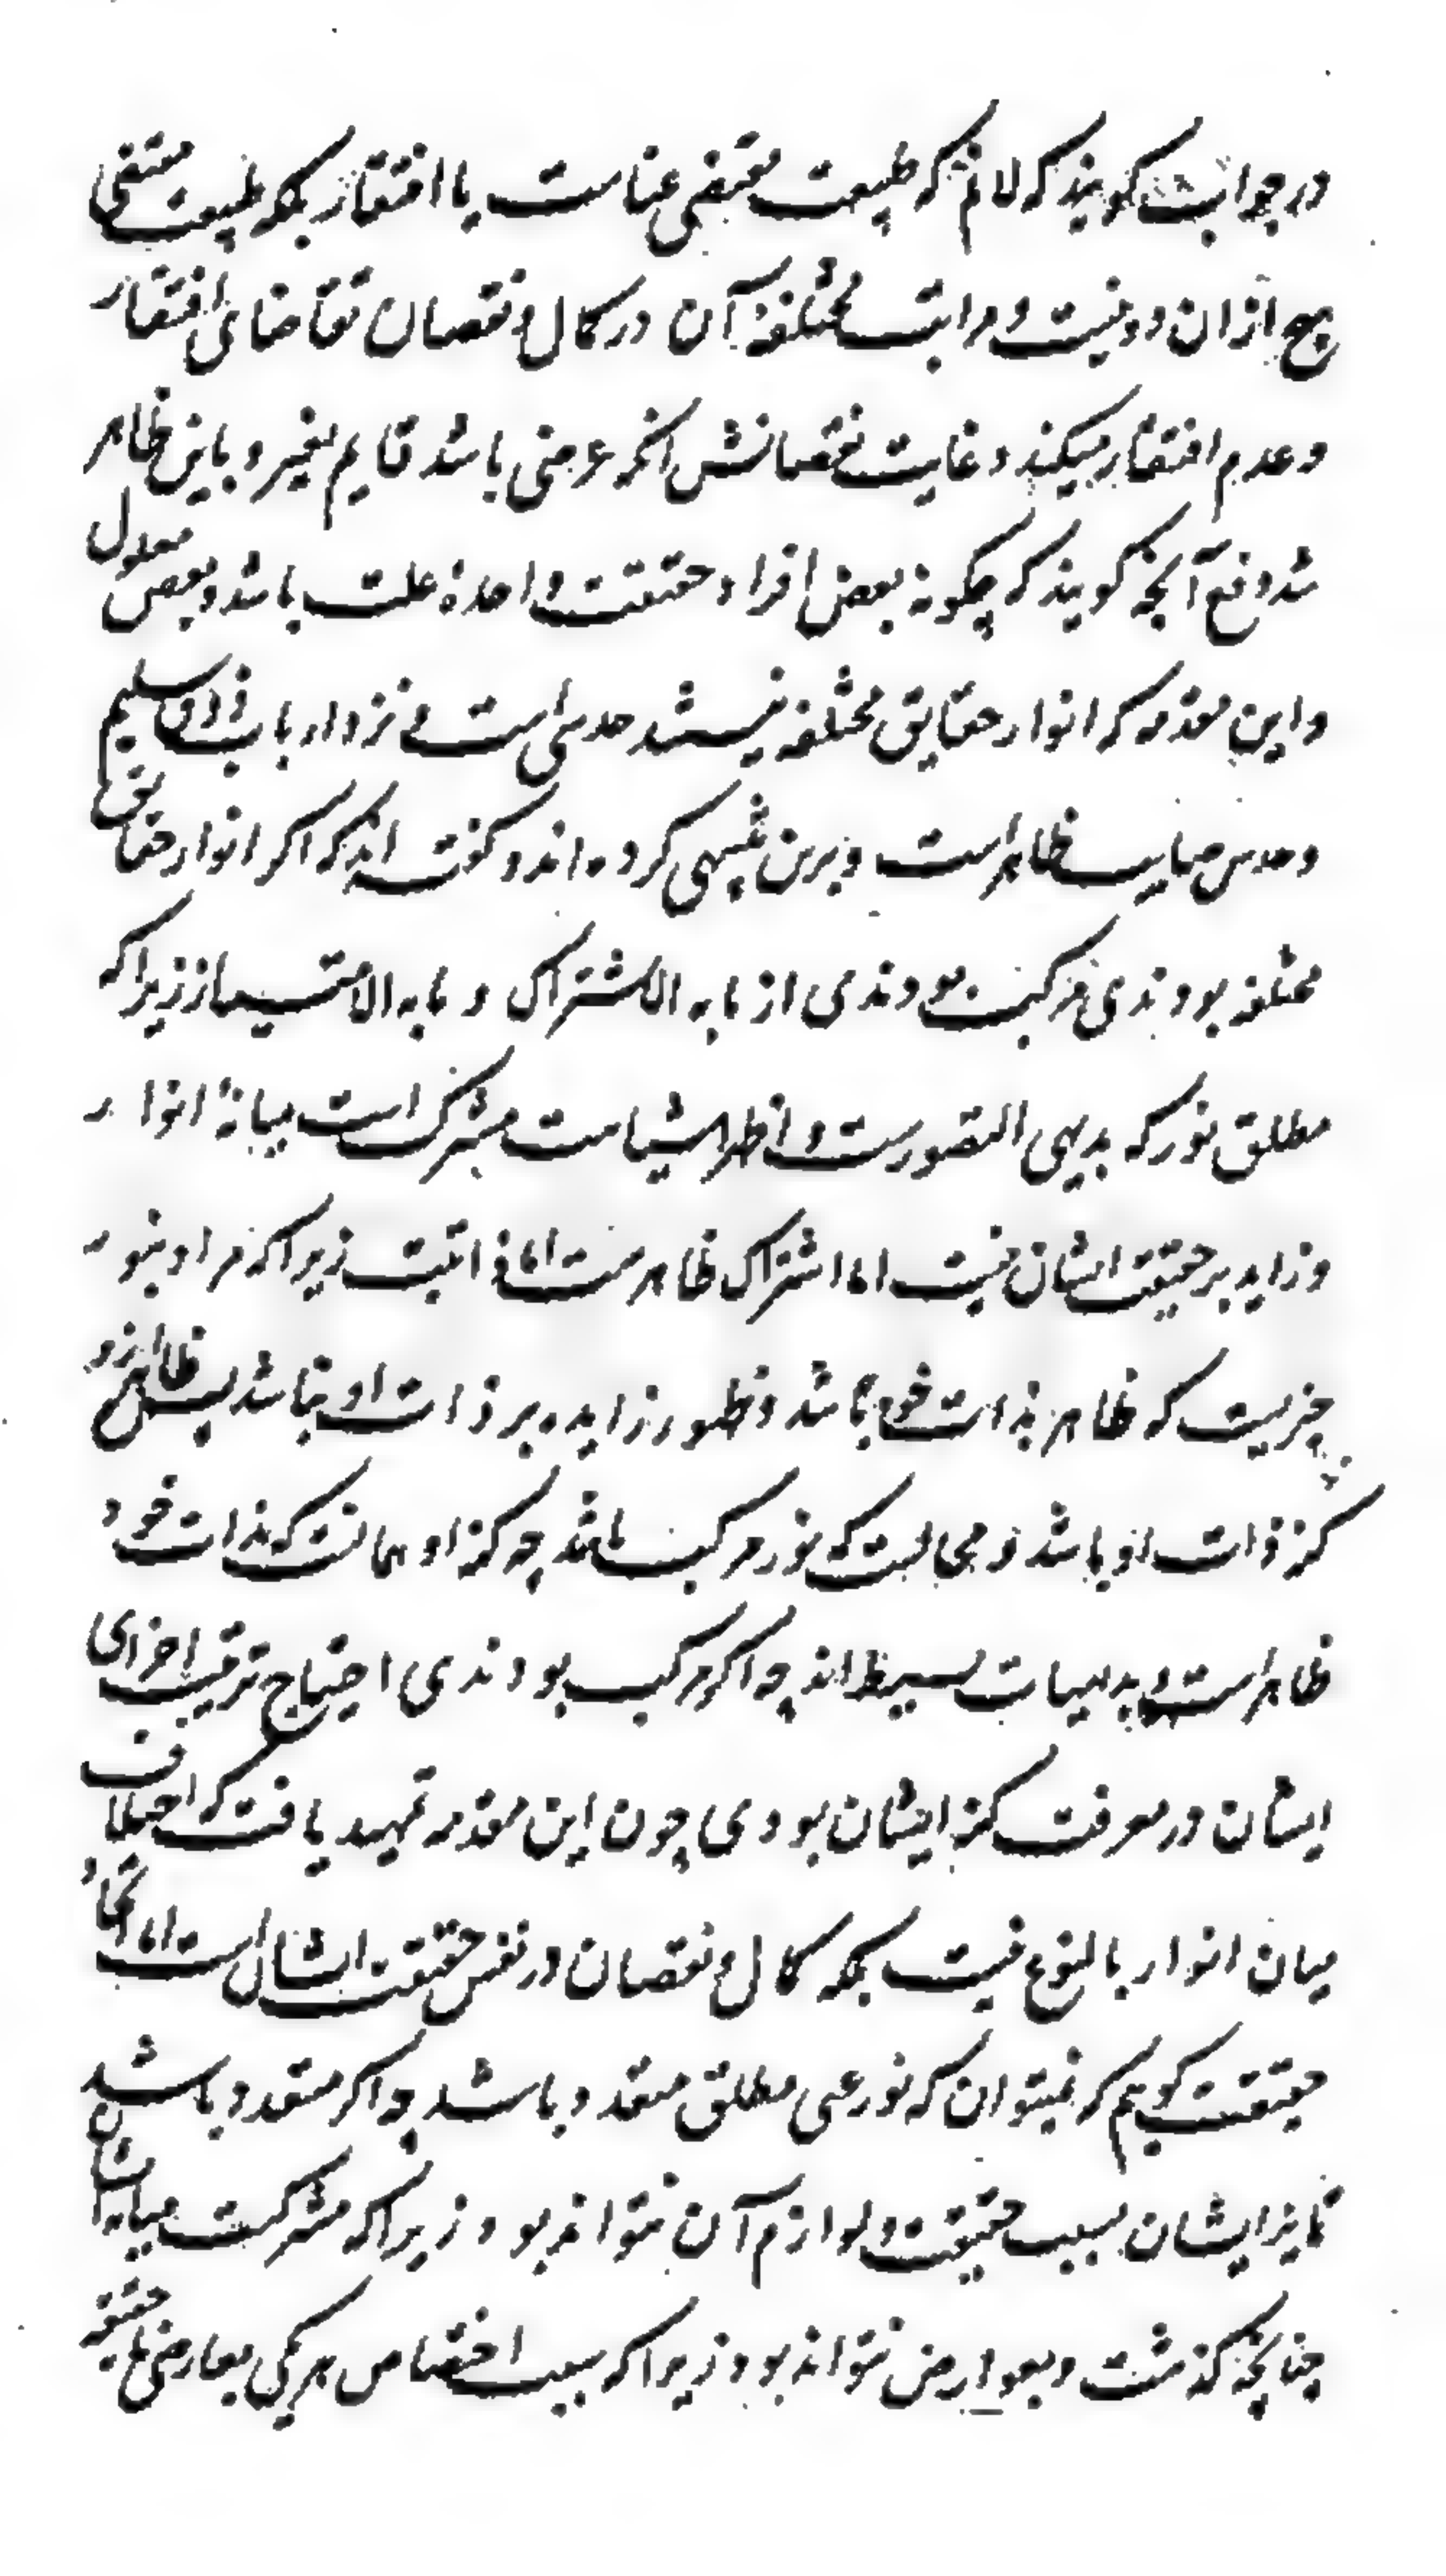 در جواب گویند که لانم که طبیعت مقتضی غناست یا افتقار بلکه طبیعت مقتضی
هیچ ازان دو نیست و مراتب مختلفهٔ آن در کمال و نقصان تقاضای افتقار
و عدم افتقار میکند و غایت نقصانش انکه عرضی باشد قایم بغیر و باین ظاهر
شد دفع آنچه گویند که چگونه بعض افراد حقیقت واحدهٔ علت باشد و بعض معلول
و این مقدمه که انوار حقایق مختلفه نیستند حدسی است نزد ارباب اذواق سلیم
و حدس صایب ظاهر است و برین تنبیهی کرده اند و گفته اند که اکر انوار حقایق
مختلفه بودندی مرکب بودندی از مابه الاشتراک و مابه الامتیاز زیرا که
مطلق نور که بدیهی التصورست و اظهر اشیاست مشترک است میانهٔ انوار
و زاید بر حقیقت ایشان نیست اما اشتراک ظاهرست اما ذاتیت زیرا که مراد بنور
چیزیست که ظاهر بذات خود باشد و ظهور زایده بر ذات او نباشد پس ظاهر ازو
کنه ذات او باشد و محالست که نور مرکب باشد چه کنه او همانست که بذات خود
ظاهر است و بدیهیات بسیط اند چه اکر مرکب بودندی احتیاج ترتیب اجزای
ایشان در معرفت کنه ایشان بودی چون این مقدمه تمهید یافت که اختلاف
میان انوار بالنوع نیست بلکه کمال و نقصان در نفس حقیقت ایشان است اما اتحاد
حقیقت گویم که نمیتوان که نور غنی مطلق متعدد باشد چه اکر متعدد باشد
تمایز ایشان بسبب حقیقت و لوازم آن نتواند بود زیرا که مشترکست میانه ایشان
چنانچه گذشت و بعوارض نتواند بود زیرا که سبب اختصاص هر یکی بعارضی یا حقیقة